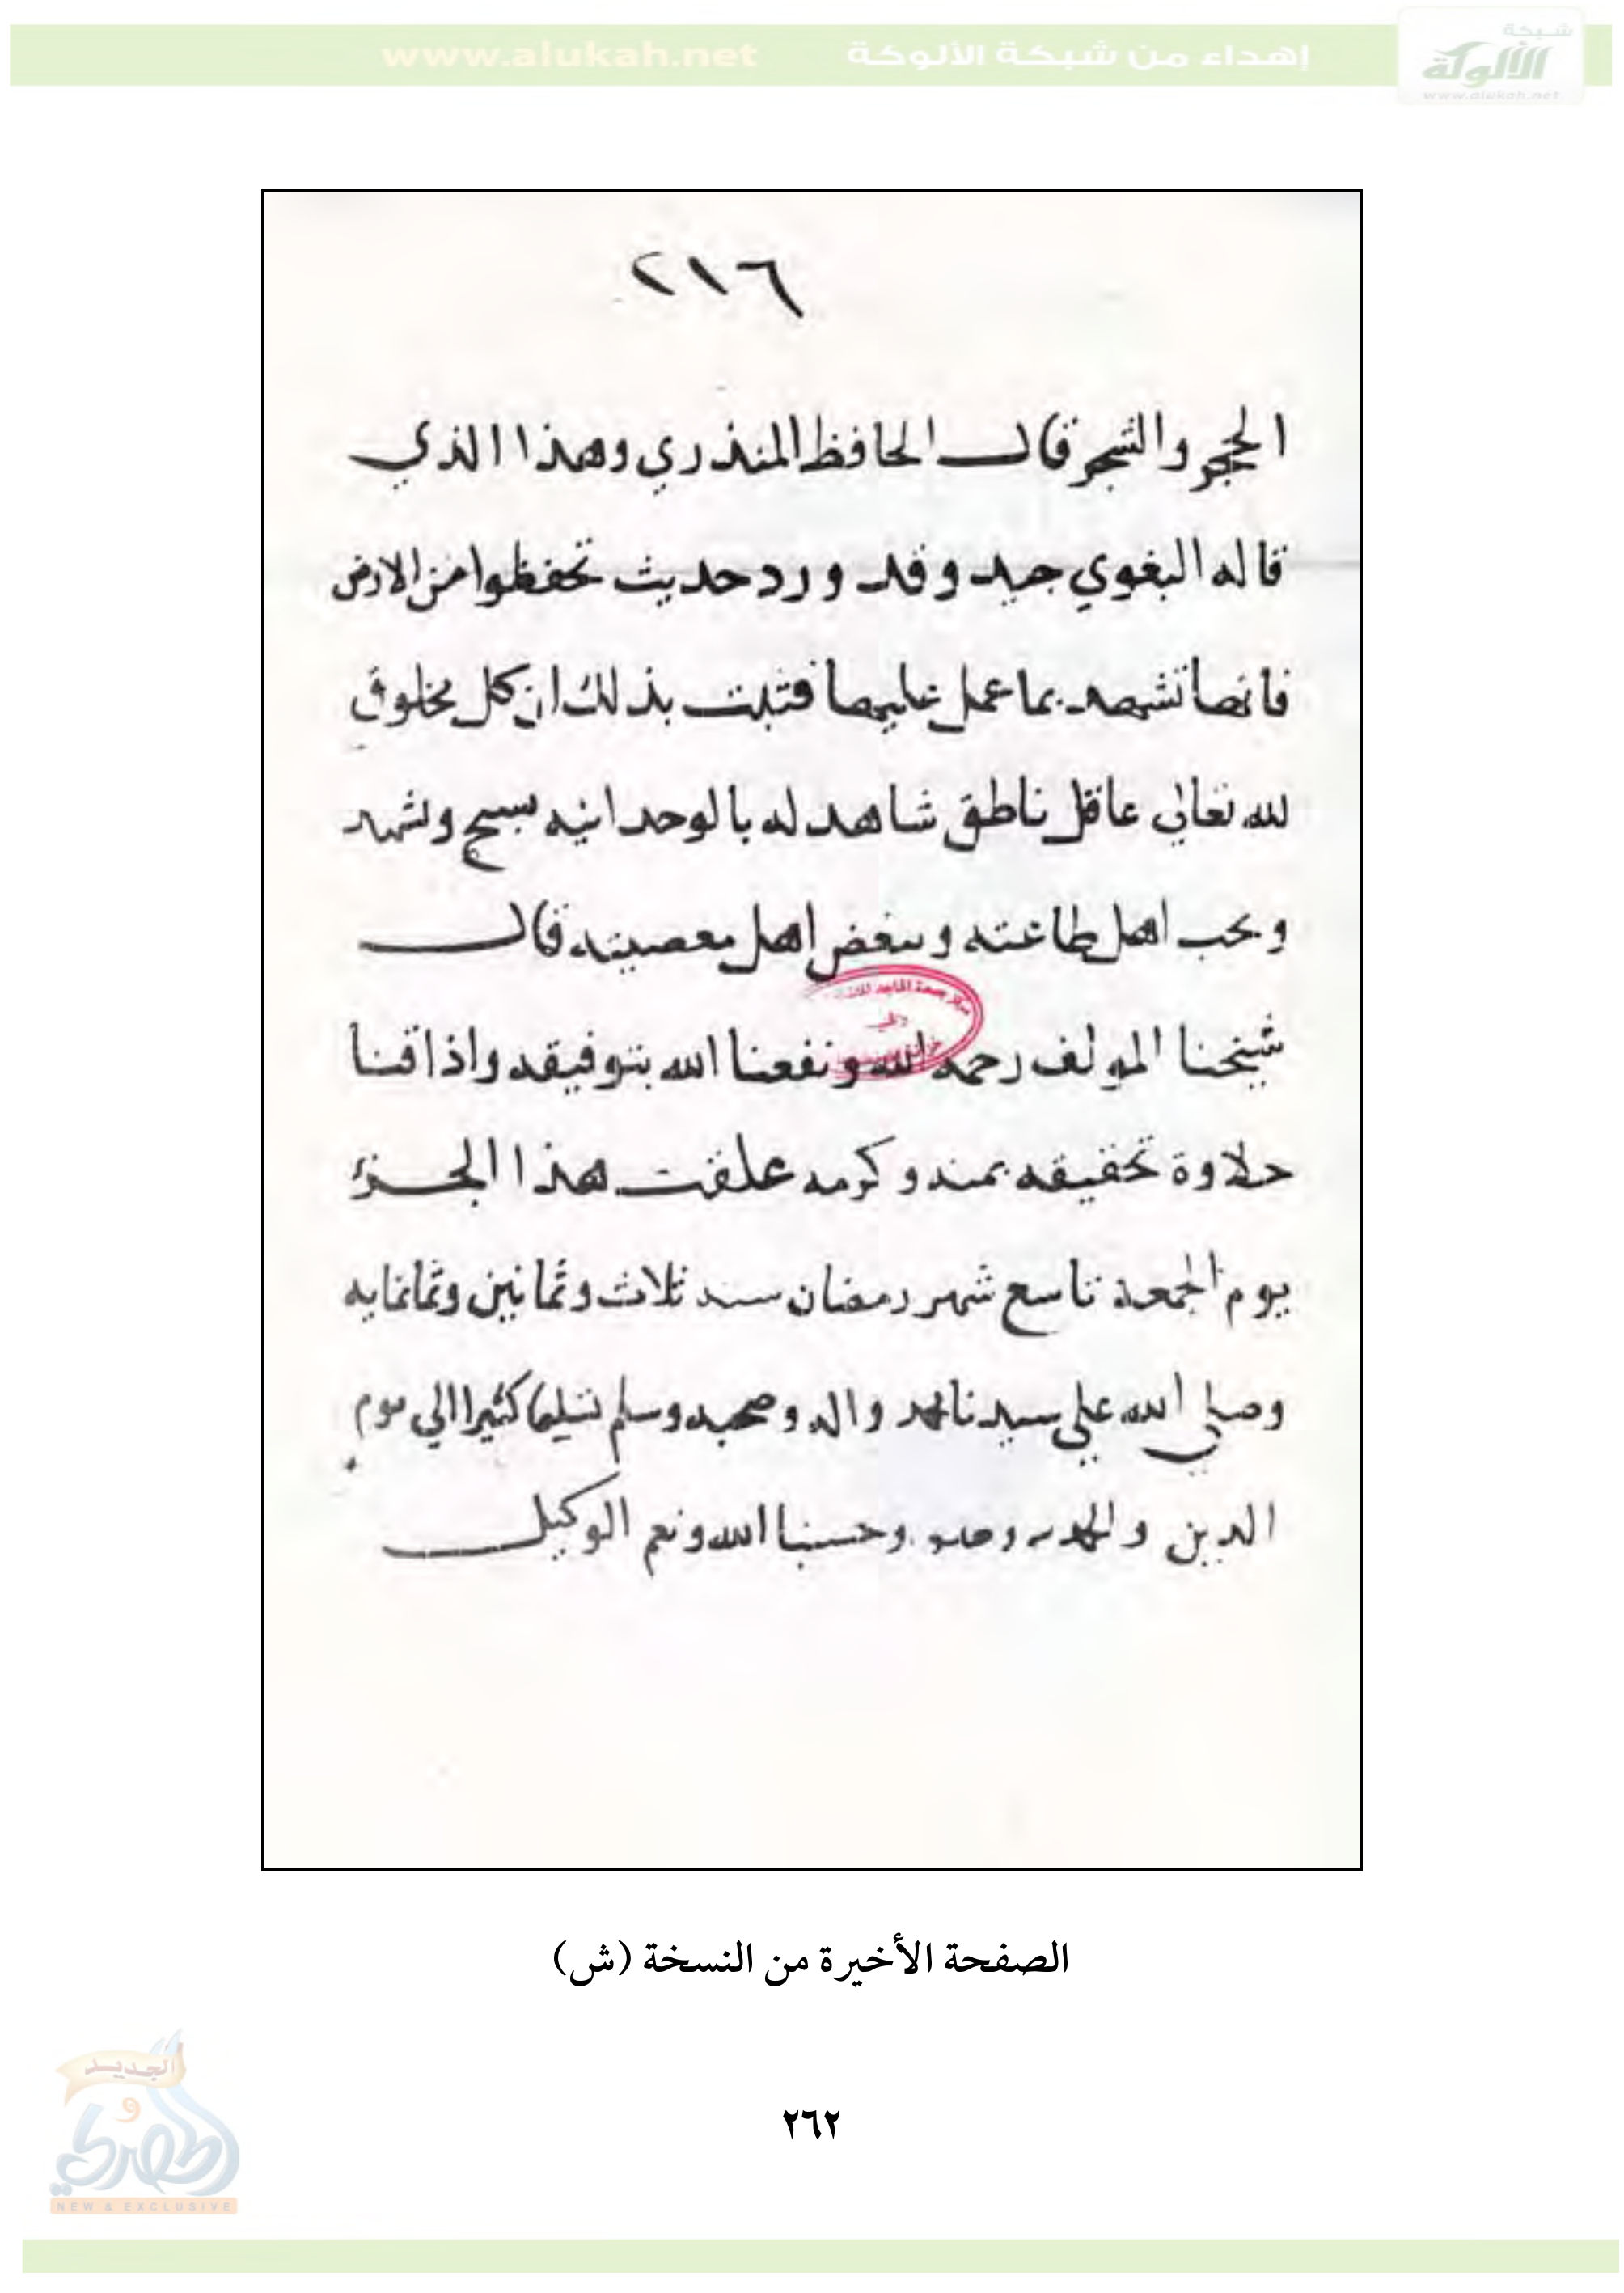 شبكة
الألوكة
www.alukah.net
إهداء من شبكة الألوكة www.alukah.net
٢١٦
الحجر والشجر قال الحافظ المنذري وهذا الذي
قاله البغوي جيد وقد ورد حديث تحفظوا من الارض
فانها تشهد بما عمل عليها فثبت بذلك ان كل مخلوق
لله تعالى عاقل ناطق شاهد له بالوحدانيه يسبح ويشهد
ويحب اهل طاعته ويبغض اهل معصيته قال
شيخنا المولف رحمه الله ونفعنا الله بتوفيقه واذاقنا
حلاوة تحقيقه بمنه وكرمه علقت هذا الجزء
يوم الجمعة تاسع شهر رمضان سنه ثلاث وثمانين وثمانمايه
وصلى الله علي سيدنا محمد واله وصحبه وسلم تسليما كثيرا الي يوم
الدين والحمد لله وحده وحسبنا الله ونعم الوكيل
مركز جمعة الماجد
دبي
الصفحة الأخيرة من النسخة (ش)
٢٦٢
الجديد
و
الحصري
NEW & EXCLUSIVE